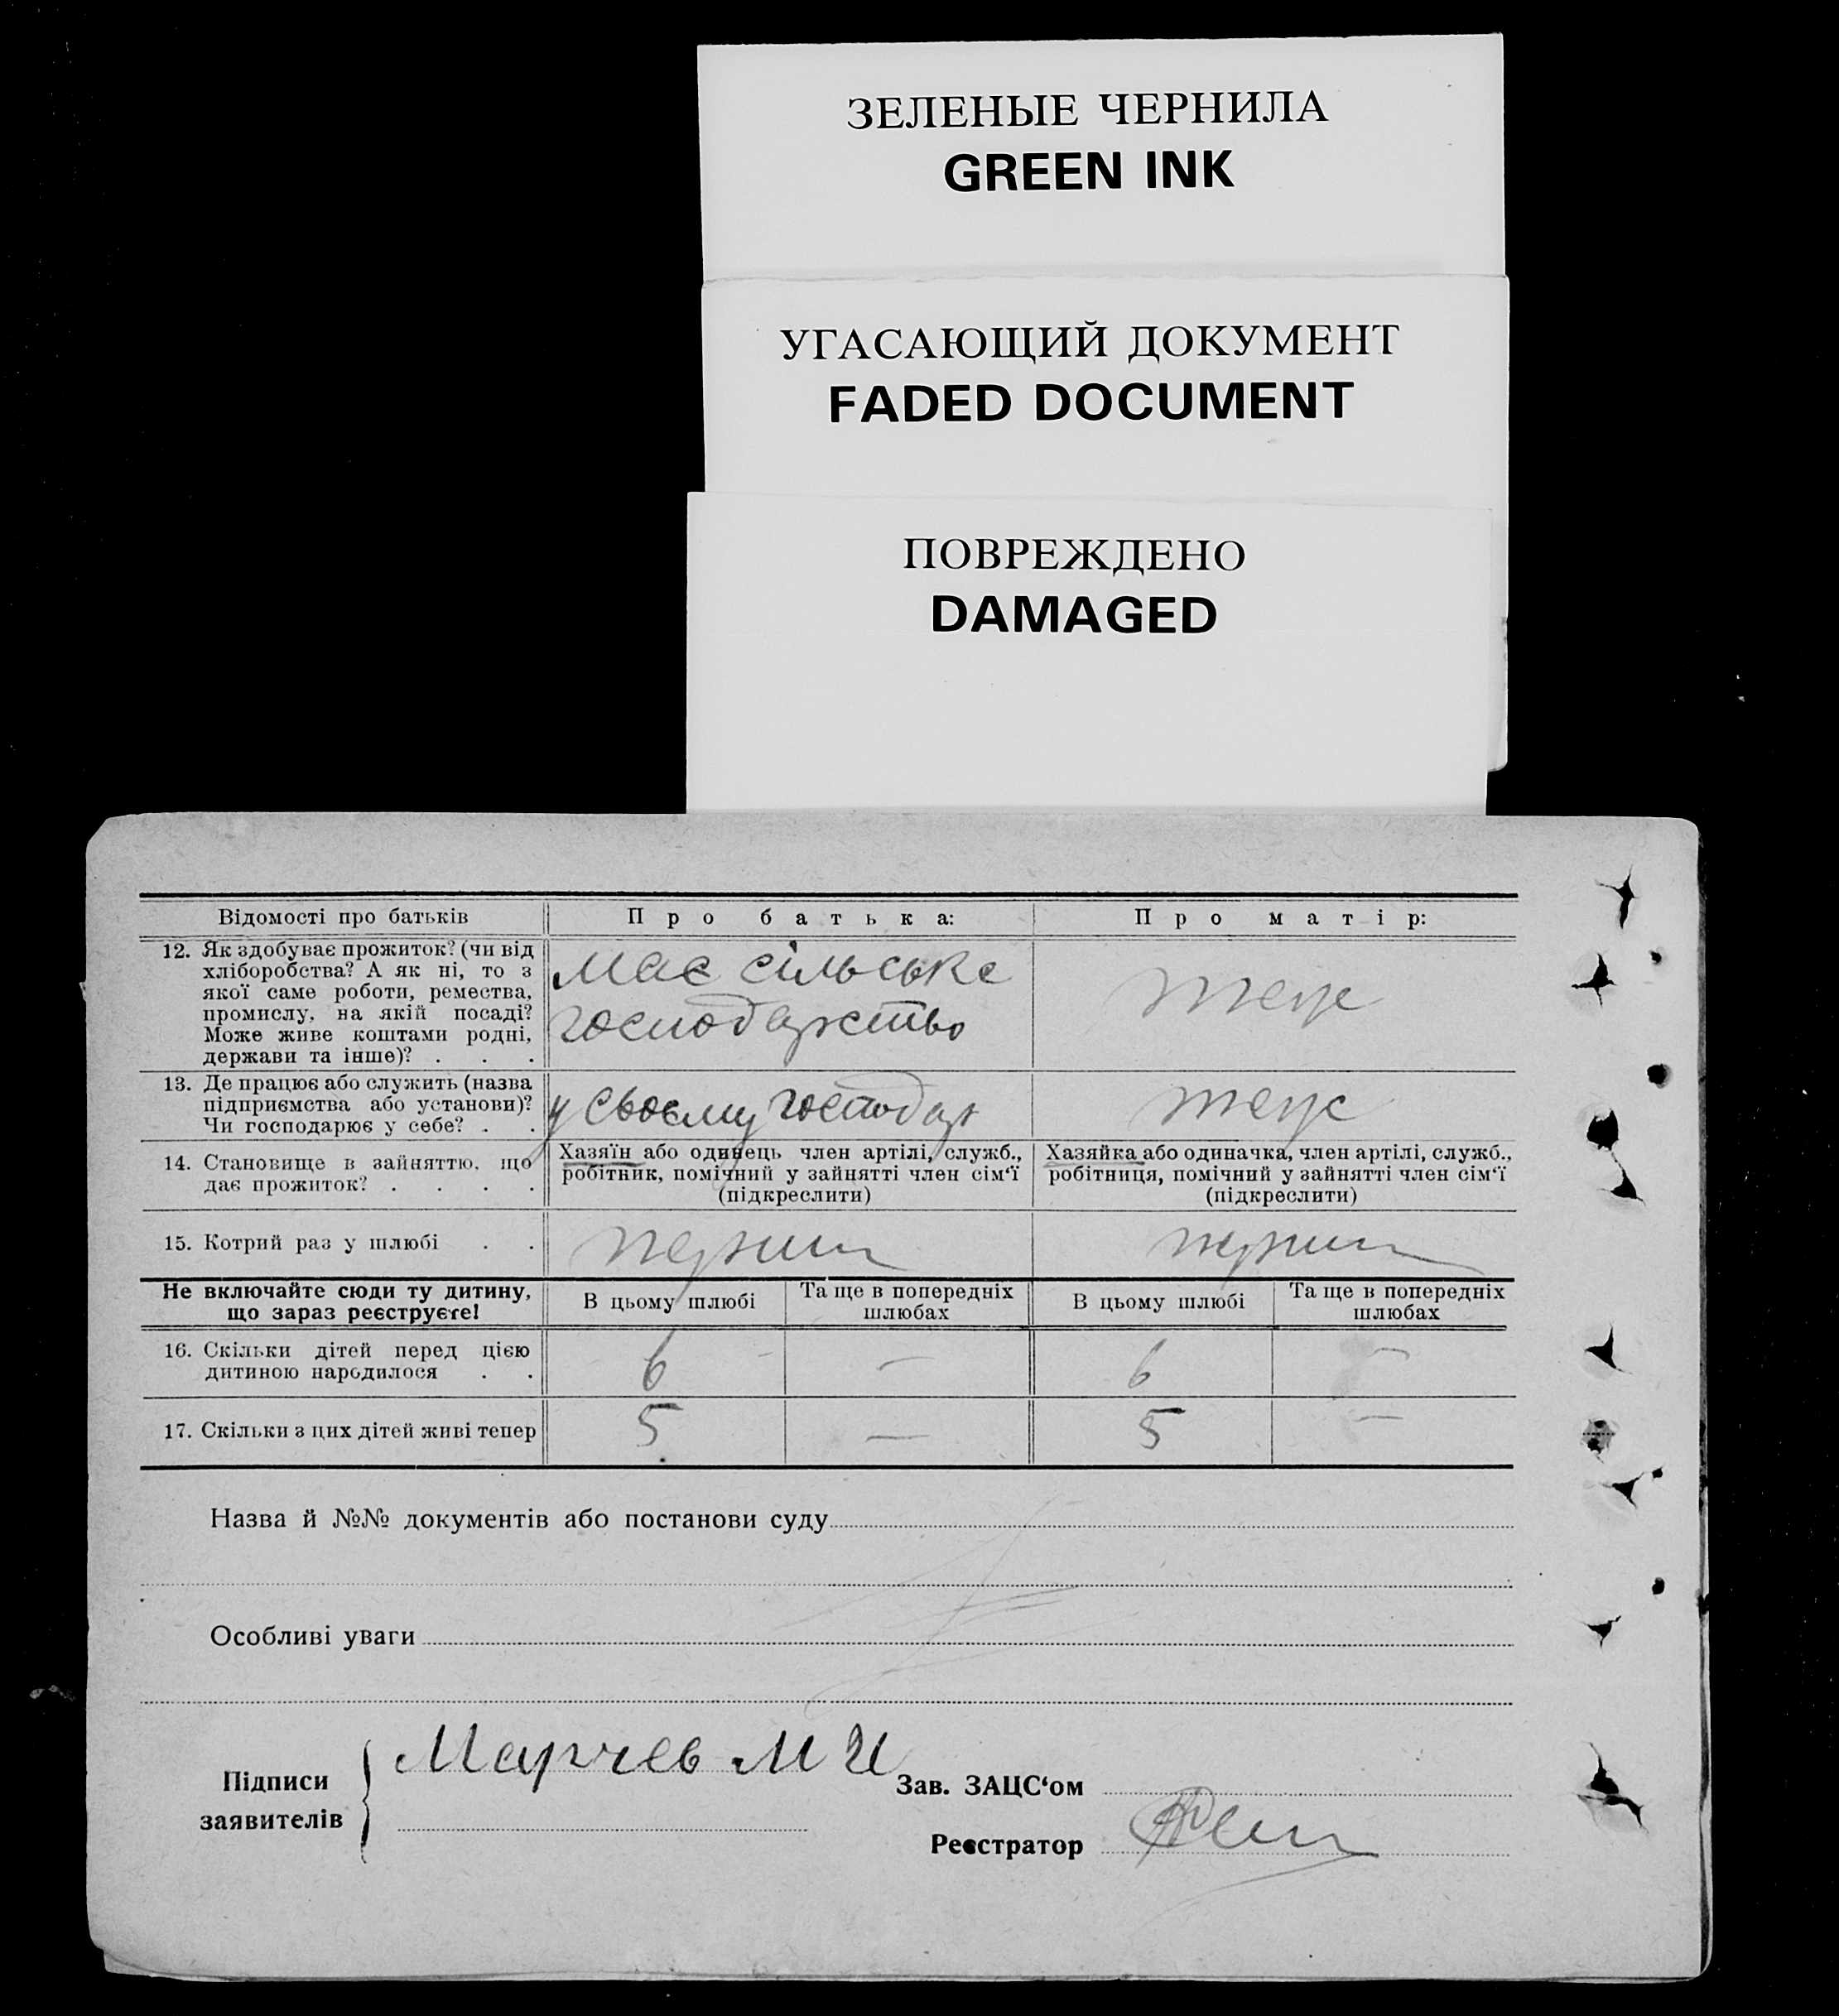 ЗЕЛЕНЫЕ ЧЕРНИЛА
GREEN INK
УГАСАЮЩИЙ ДОКУМЕНТ
FADED DOCUMENT
ПОВРЕЖДЕНО
DAMAGED
Відомості про батьків
Про батька:
Про матір:
12. Як здобуває прожиток? (чи від
хліборобства? А як ні, то з
якої саме роботи, ремества,
промислу, на якій посаді?
Може живе коштами родні,
держави та інше)? . . .
Має сільське
господарство
теж
13. Де працює або служить (назва
підприємства або установи)?
Чи господарює у себе? . .
у своєму господар
теж
14. Становище в зайняттю, що
дає прожиток? . . . .
Хазяїн або одинець член артілі, служб.,
робітник, помічний у зайнятті член сім'ї
(підкреслити)
Хазяйка або одиначка, член артілі, служб.,
робітниця, помічний у зайнятті член сім'ї
(підкреслити)
15. Котрий раз у шлюбі . .
Не включайте сюди ту дитину,
що зараз реєструєте!
В цьому шлюбі
Та ще в попередніх
шлюбах
В цьому шлюбі
Та ще в попередніх
шлюбах
16. Скільки дітей перед цією
дитиною народилося . .
6 — 6 —
17. Скільки з цих дітей живі тепер
5 — 5 —
Назва й №№ документів або постанови суду
Особливі уваги
Підписи
заявителів
Марчев М И
Зав. ЗАЦС'ом
Реєстратор